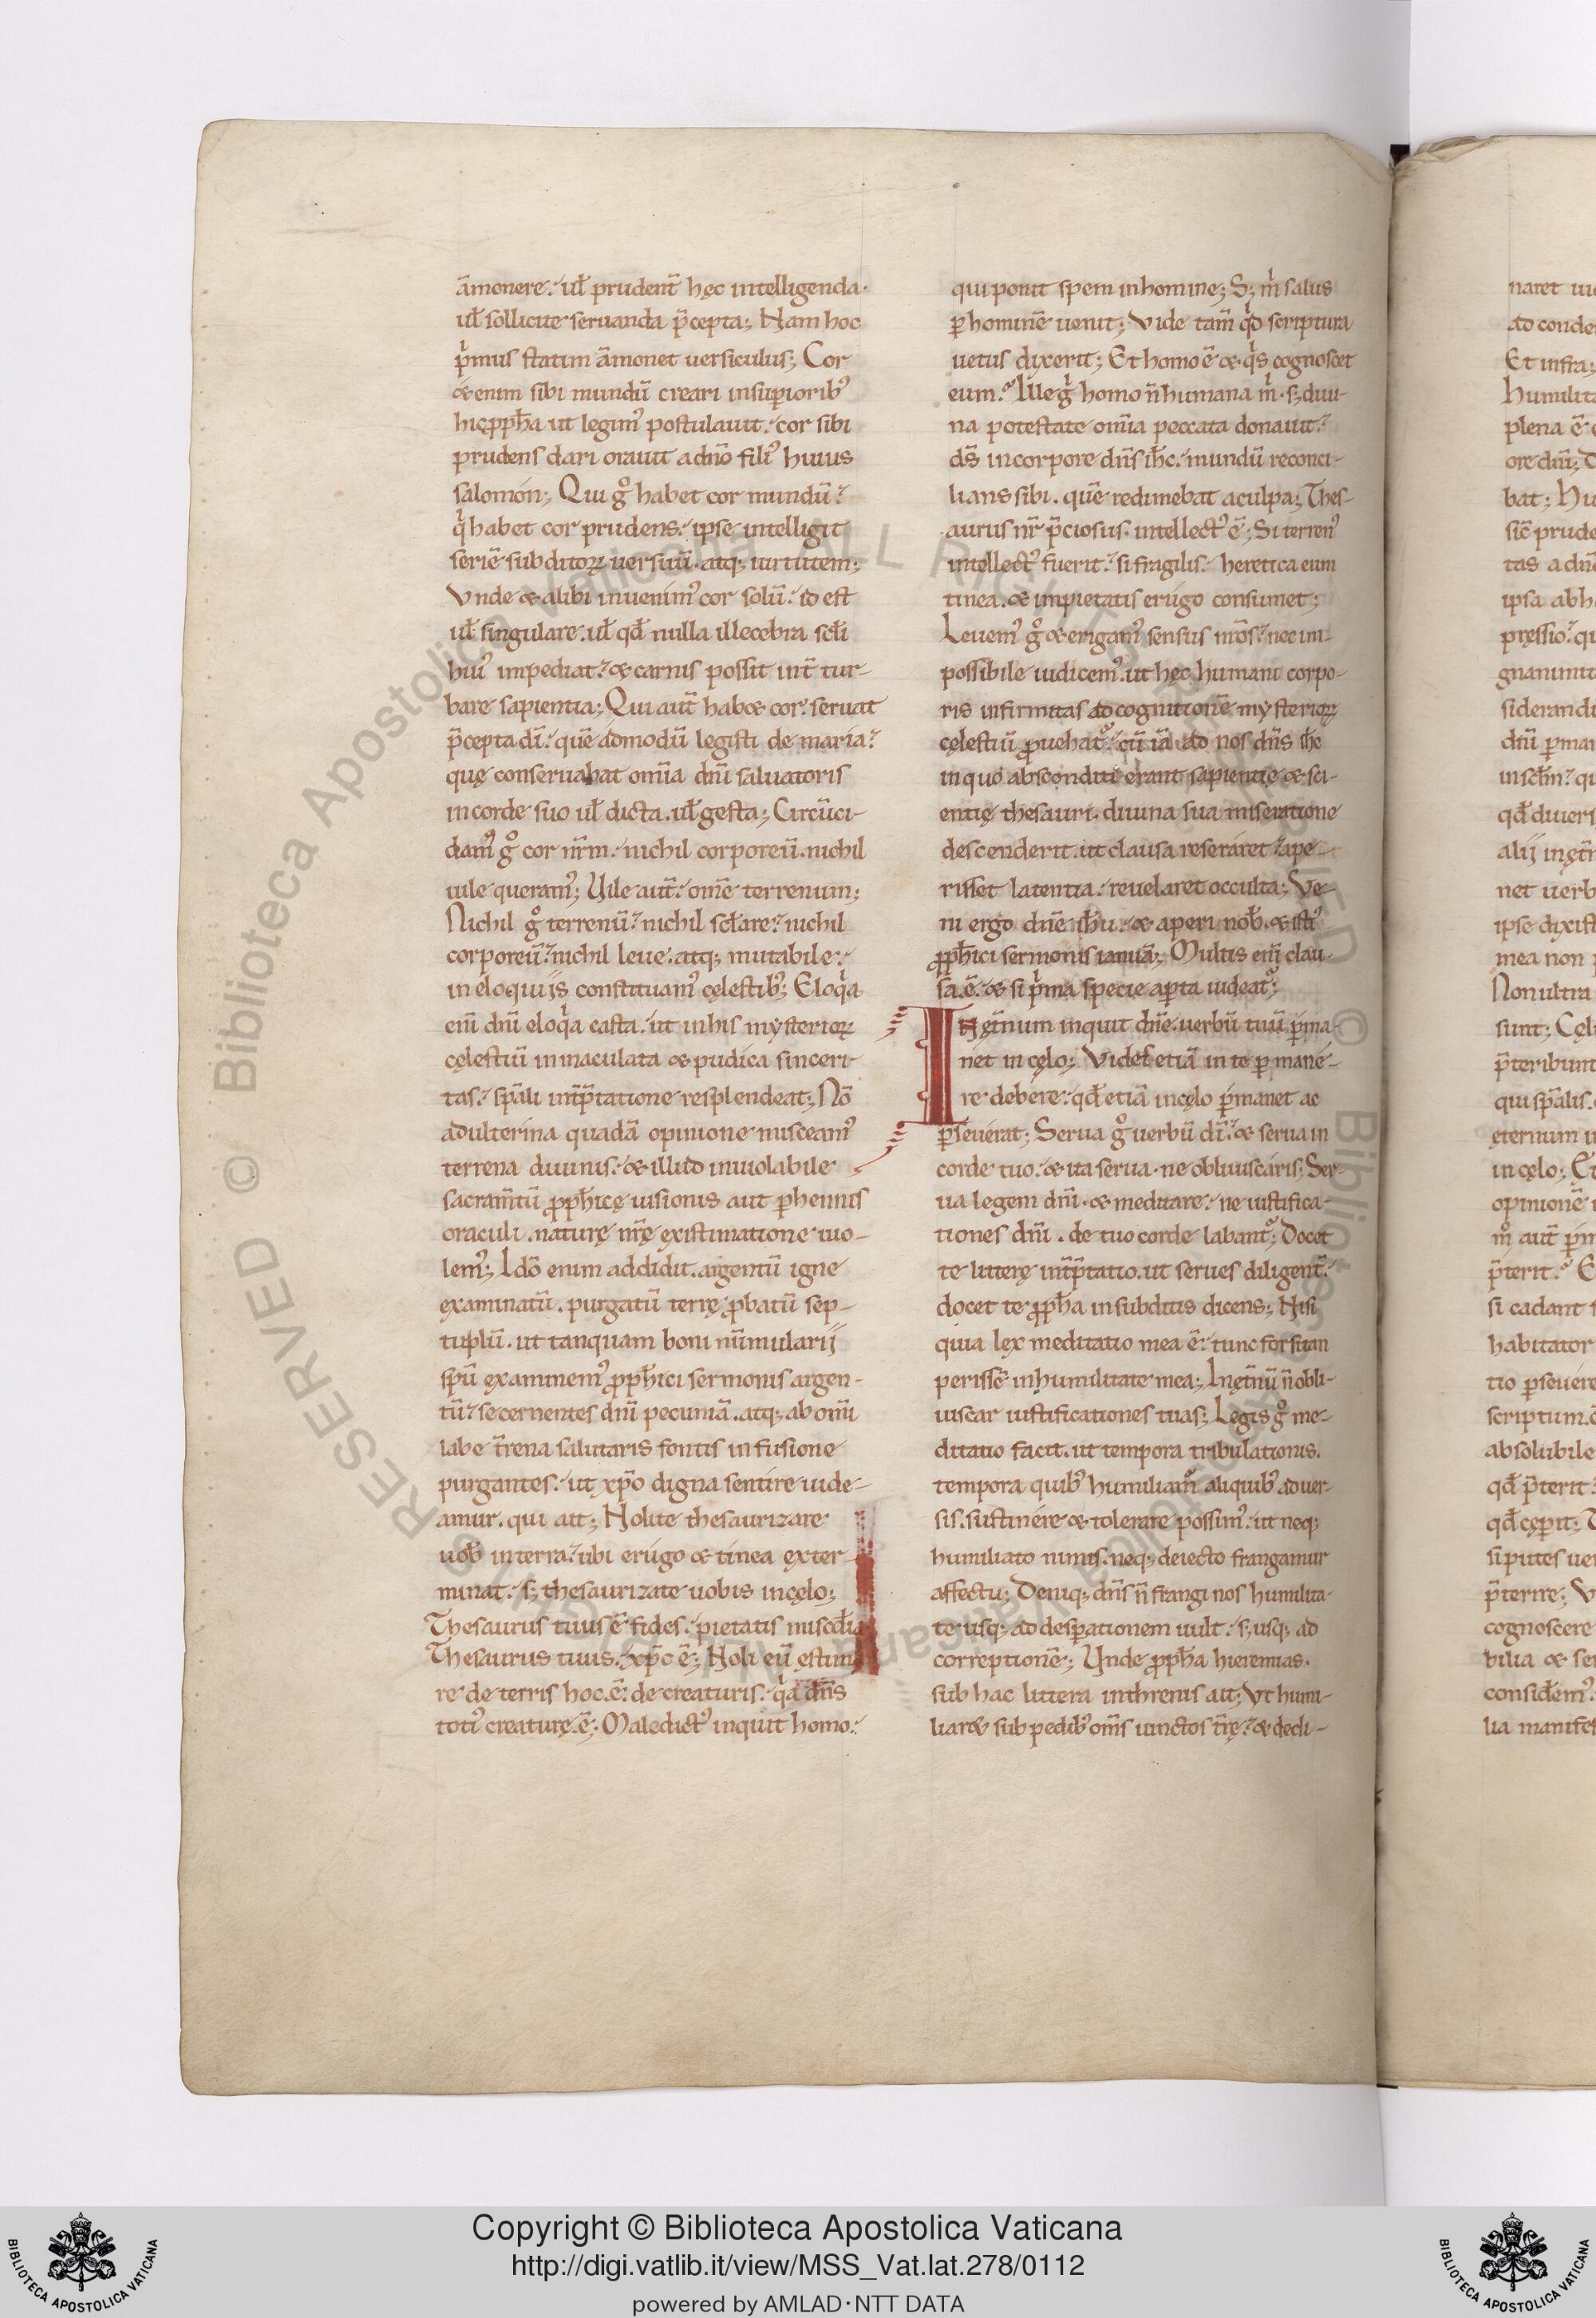 ām̄onere. ul̄ prudent̄ hęc intelligenda.
ul̄ sollicite seruanda p̄cepta; Nam hoc
pͥmus statim āmonet uersiculus; Cor
&enim sibi mundū creari in suꝑioribꝰ
hic ꝓph̄a ut legimꝰ postulauit. cor sibi
prudens dari orauit a dn̄o filiꝰ huius
salomon; Qui gͦ habet cor mundū?
qͥ habet cor prudens. ipse intelligit
seriē subditoꝝ uersiuū. atq; uirtutem;
Vnde & alibi inuenimꝰ cor solū. id est
ul̄ singulare. ul̄ qd̄ nulla illecebra scl̄i
huiꝰ impediat. & carnis possit int̄ tur-
bare sapientia; Qui aut̄ hab& cor. seruat
p̄cepta dī. quē admodū legisti de maria.
quę conseruabat om̄ia dn̄i saluatoris
in corde suo ul̄ dicta. ul̄ gesta; Circūci-
damꝰ gͦ cor nr̄m. nichil corporeū. nichil
uile queramꝰ; Uile aut̄. om̄e terrenum;
Nichil gͦ terrenū. nichil scl̄are. nichil
corporeū. nichil leue. atq; mutabile.
in eloquiis constituamꝰ cęlestibꝰ; Eloqͥa
eni dn̄i eloqͥa casta. ut in his mysterioꝝ
cęlestiū inmaculata & pudica sinceri-
tas. sp̄ali int̄p̄tatione resplendeat; Nō
adulterina quadā opinione misceamꝰ
terrena diuinis. & illud inuiolabile
sacram̄tū ꝓph̄icę uisionis aut ꝑhennis
oraculi. naturę nr̄ę existimatione uio-
lemꝰ; Idō enim addidit. argentū igne
examinatū. purgatū terrę ꝓbatū sep-
tuplū. ut tanquam boni nūmularii
spū examinemꝰ ꝓph̄ici sermonis argen-
tū. secernentes dn̄i pecuniā. atq; ab omi
labe t̄rena salutaris fontis infusione
purgantes. ut xp̄o digna sentire uide-
amur. qui ait; Nolite thesaurizare
uob̄ in terra. ubi erugo & tinea exter
minat. s; thesaurizate uobis in cęlo;
Thesaurus tuus ē fides. pietatis miscd̄ia
Thesaurus tuus. xp̄c ē; Noli eū ęstima
re de terris hoc. ē. de creaturis. qͥa dn̄s
totiꝰ creaturę. ē. Maledictꝰ inquit homo.
qui ponit spem in homine; S; m̄ salus
ꝑ hominē uenit; Vide tam̄ qͥd scriptura
uetus dixerit; Et homo ē & qͥs cognoscet
eum. Ille gͥ homo n̄ humana m̄. s; diui-
na potestate om̄ia peccata donauit.
ds̄ in corpore dn̄s ih̄c. mundū reconci-
lians sibi. quē redimebat a culpa; Thes-
aurus nr̄ p̄ciosus. intellectꝰ ē; Si terrenꝰ
intellectꝰ fuerit. si fragilis. heretica eum
tinea. & impietatis erugo consumet;
Leuemꝰ gͦ & erigamꝰ sensus nr̄os. nec im-
possibile iudicemꝰ. ut hęc humani corpo-
ris infirmitas ad cognitionē mysterioꝝ
cęlestiū ꝓuehat᷑. cū iā ad nos dn̄s ih̄c
in quo absconditi erant sapientię & sci-
entię thesauri. diuina sua miseratione
descenderit. ut clausa reseraret. ape-
risset latentia. reuelaret occulta; Ve-
ni ergo dn̄e ih̄u. & aperi nob̄. & istiꝰ
ꝓph̄ici sermonis ianuā; Multis eni clau-
sa. ē. & si pͥma specie aꝑta uideat᷑;
In ęt̄num inquit dn̄e. uerbū tuū ꝑma-
net in cęlo; Videt etiā in te ꝑmane-
re debere. qd̄ etiā in cęlo ꝑmanet ac
ꝑseuerat; Serua gͦ uerbū dī. & serua in
corde tuo. & ita serua. ne obliuiscaris; Ser-
ua legem dn̄i. & meditare. ne iustifica-
tiones dn̄i. de tuo corde labant᷑; Docet
te litterę int̄p̄tatio. ut serues diligent̄.
docet te ꝓph̄a in subditis dicens; Nisi
quia lex meditatio mea ē. tunc forsitan
perissē in humilitate mea; In ęt̄nū n̄ obli-
uiscar iustificationes tuas; Legis gͦ me-
ditatio facit. ut tempora tribulationis.
tempora quibꝰ humiliam᷑ aliquibꝰ aduer-
sis. sustinere & tolerare possimꝰ. ut neq;
humiliato nimis. neq; deiecto frangamur
affectu; Deniq; dn̄s n̄ frangi nos humilita-
te usq; ad desꝑationem uult. s; usq; ad
correptionē; Unde ꝓph̄a hieremias.
sub hac littera in threnis ait; Vt humi-
liar& sub pedibꝰ om̄s uinctos t̄rę. & decli-
Copyright © Biblioteca Apostolica Vaticana
http://digi.vatlib.it/view/MSS_Vat.lat.278/0112
powered by AMLAD·NTT DATA